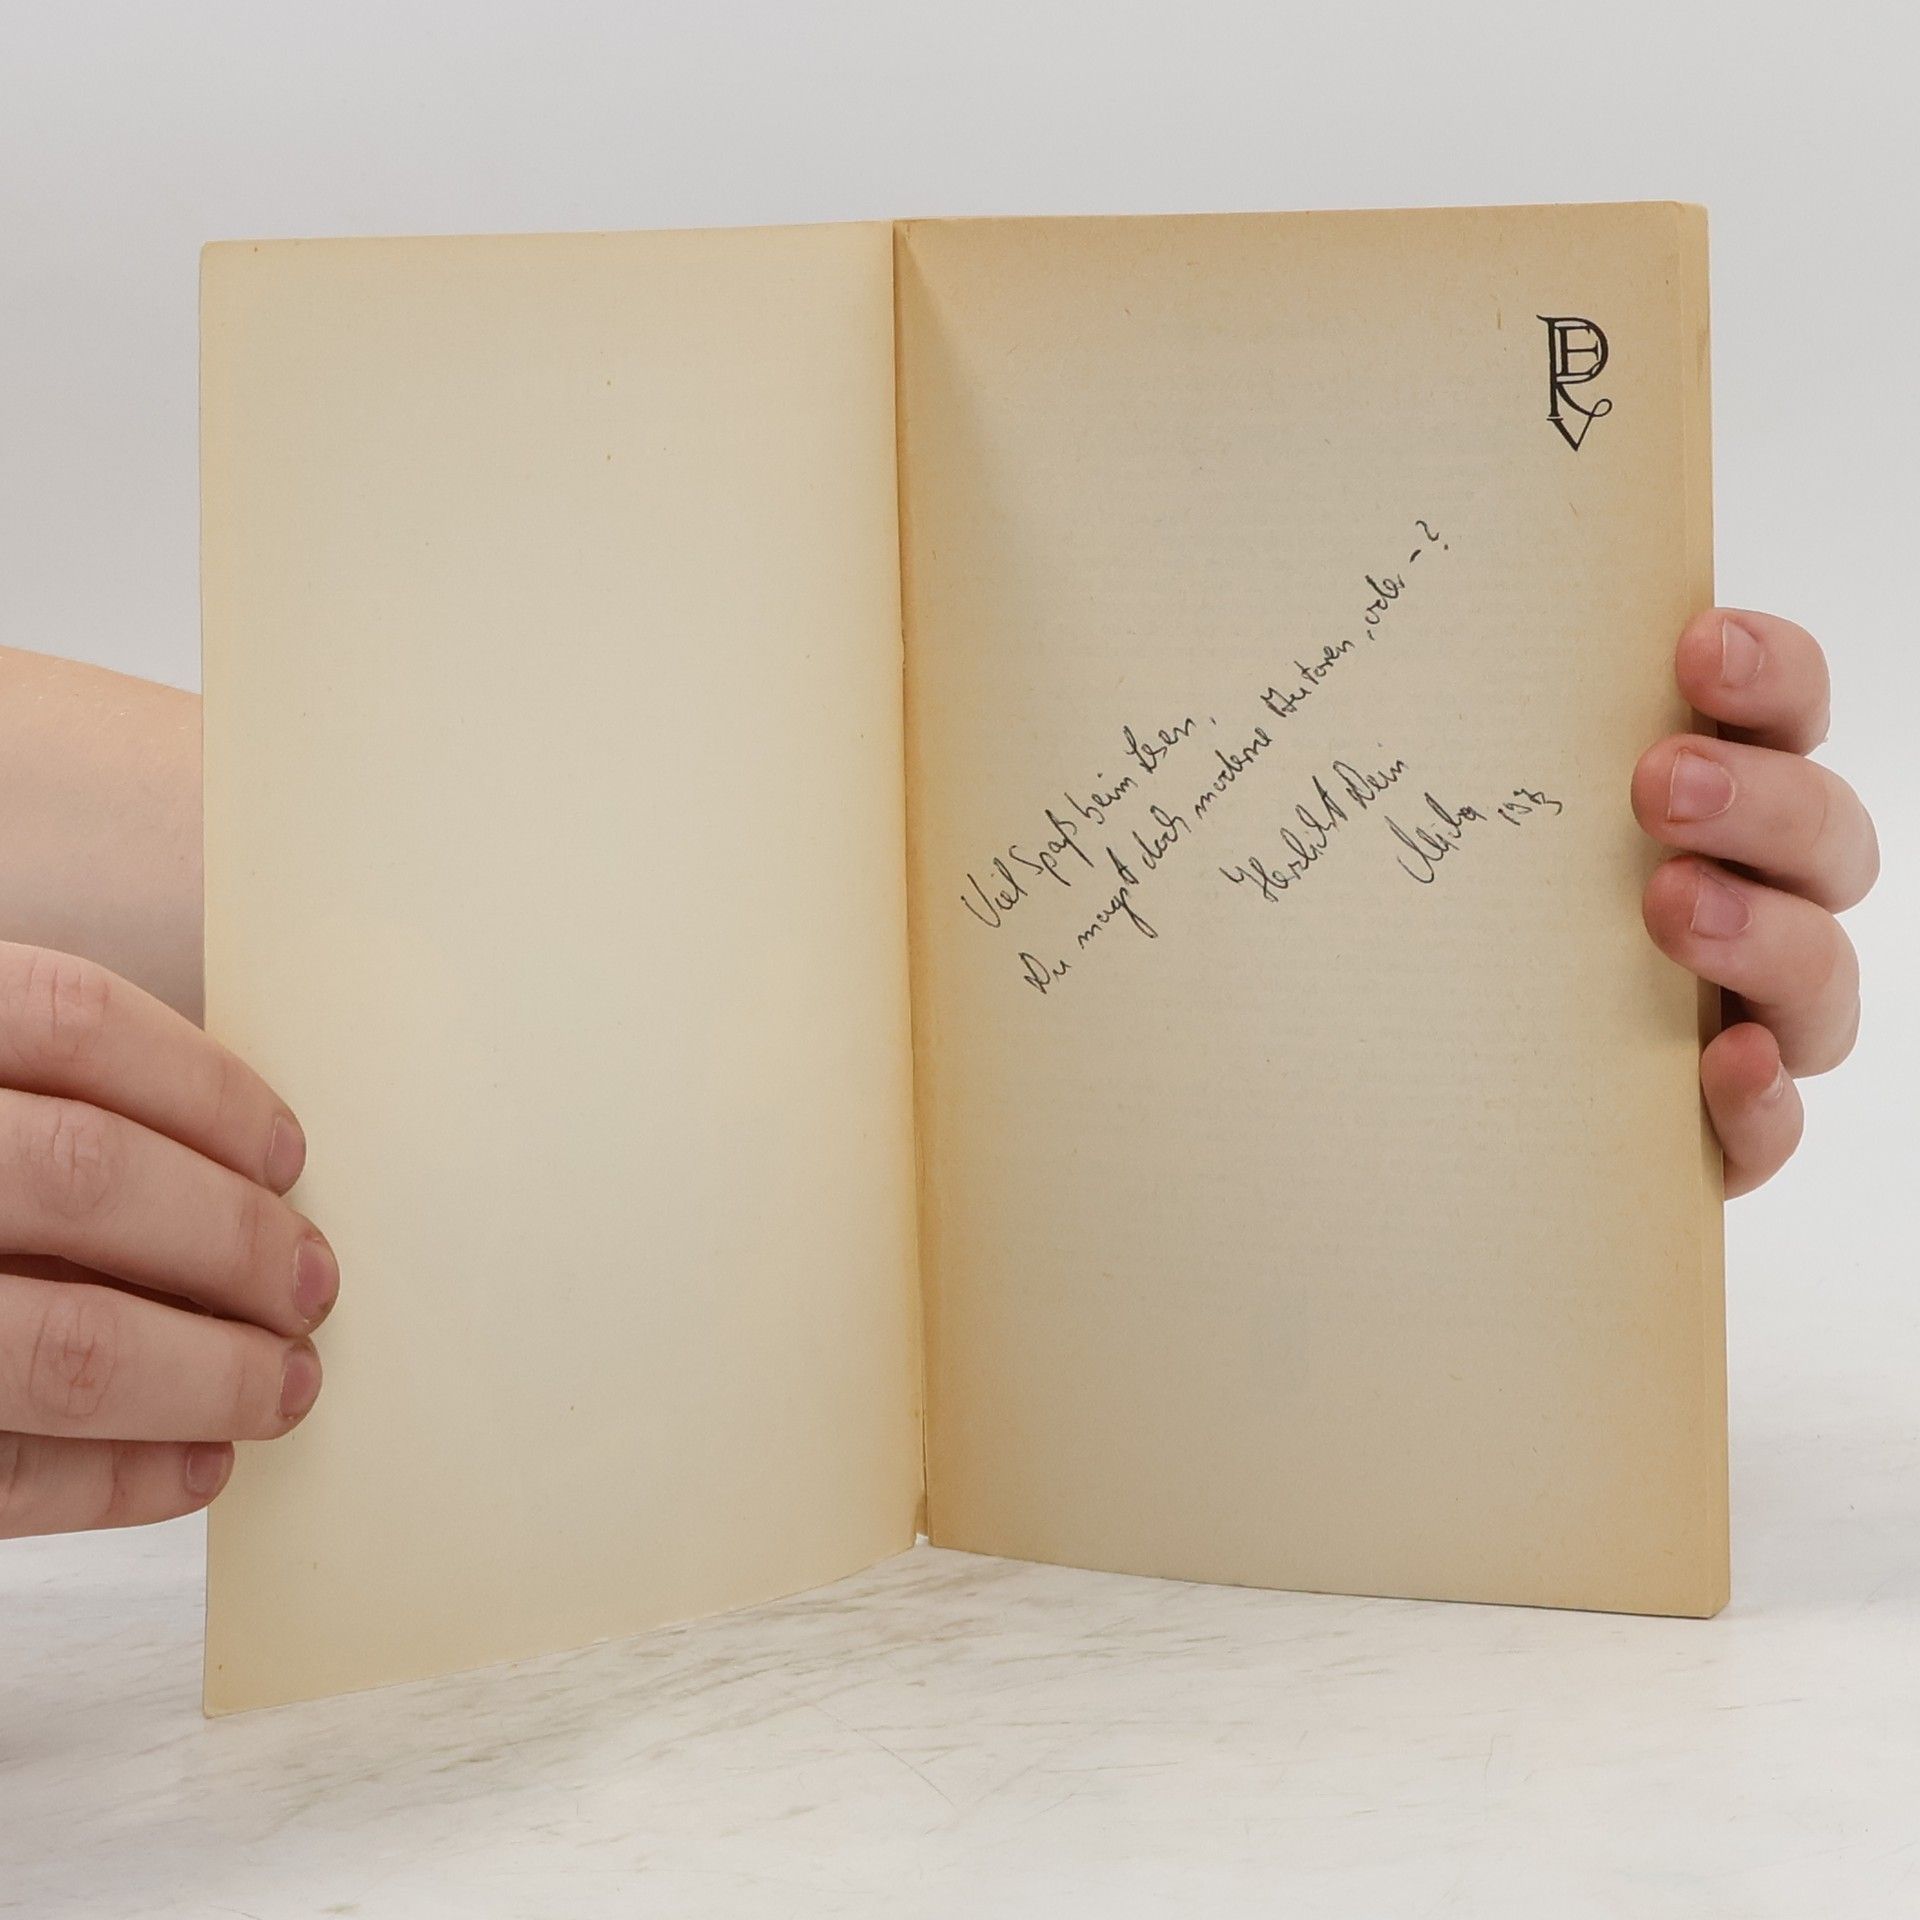 Viel Spaß beim Lesen,
Du magst doch moderne Autoren, oder - ?
Herzlichst Dein
Micha 1973